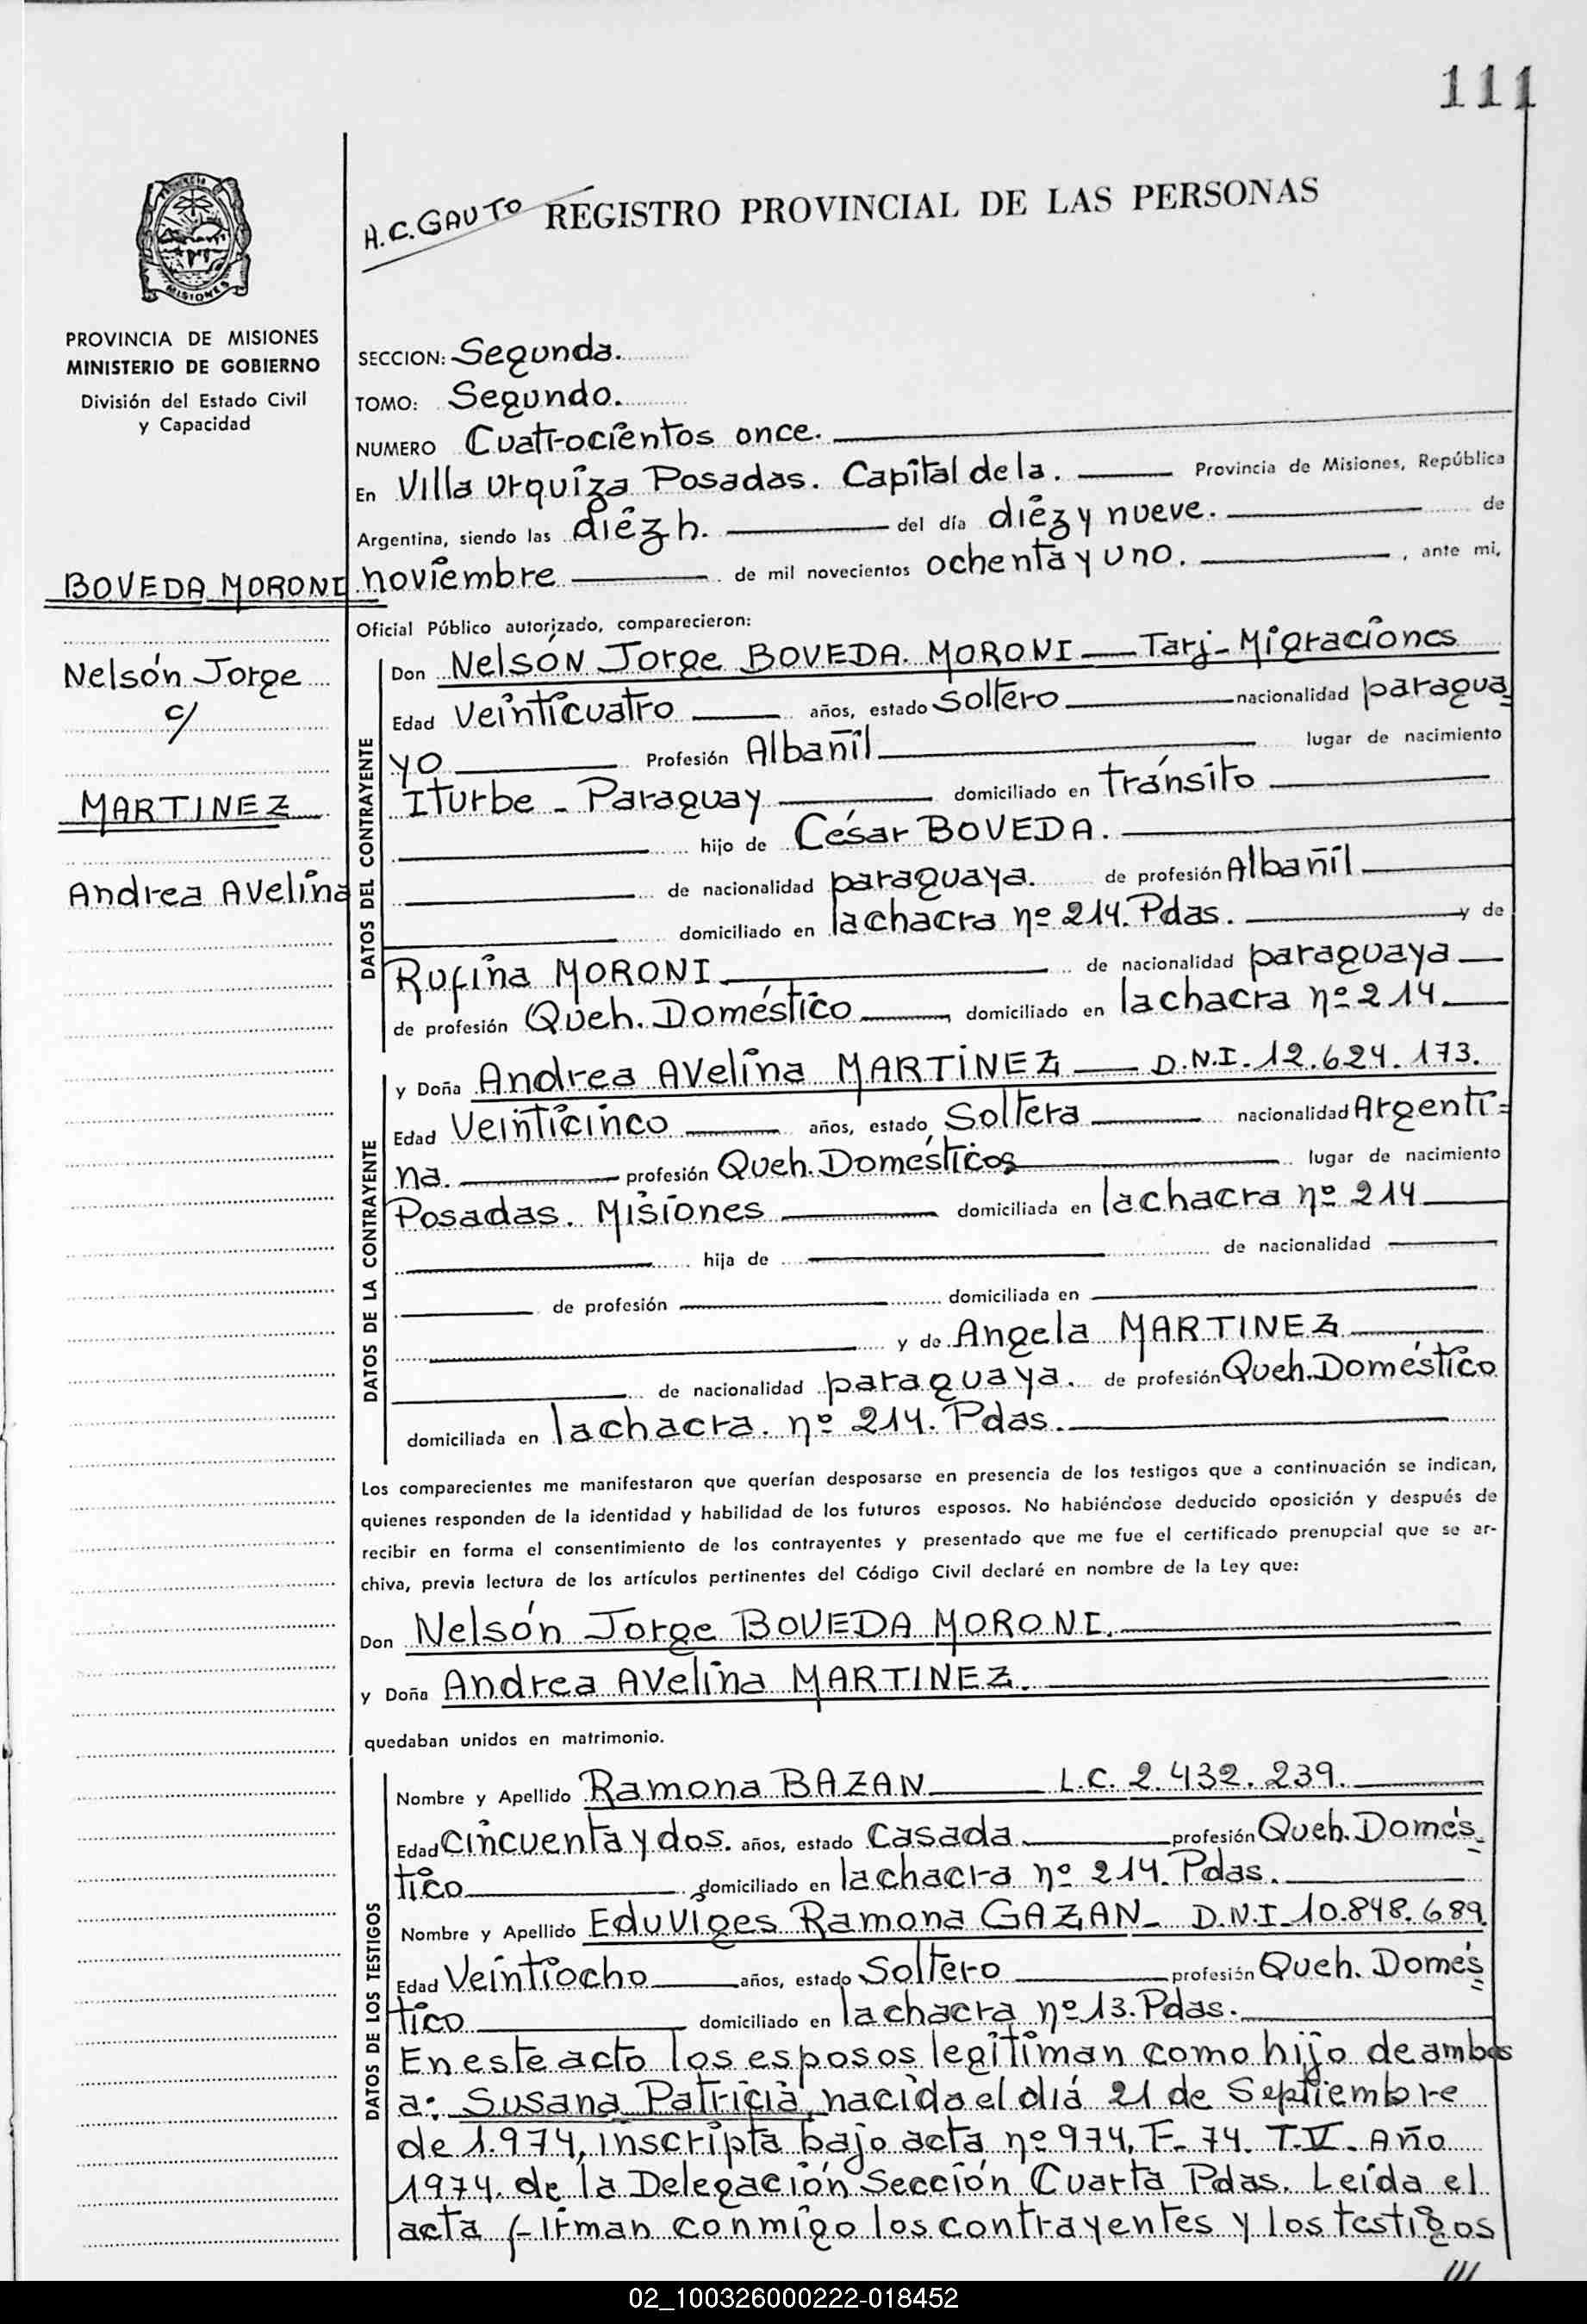 111
H.C. GAUTO REGISTRO PROVINCIAL DE LAS PERSONAS
PROVINCIA
MISIONES
PROVINCIA DE MISIONES
MINISTERIO DE GOBIERNO
División del Estado Civil
y Capacidad
BOVEDA MORONI
Nelsón Jorge
c/
MARTINEZ
Andrea Avelina
SECCION: Segunda.
TOMO: Segundo.
NUMERO Cuatrocientos once.
En Villa Urquiza Posadas. Capital de la. Provincia de Misiones, República
Argentina, siendo las diéz h. del día diéz y nueve. de
noviembre de mil novecientos ochenta y uno. , ante mi,
Oficial Público autorizado, comparecieron:
DATOS DEL CONTRAYENTE
Don Nelsón Jorge BOVEDA MORONI Tarj- Migraciones
Edad Veinticuatro años, estado Soltero nacionalidad paragua
yo Profesión Albañil lugar de nacimiento
Iturbe - Paraguay domiciliado en tránsito
hijo de César BOVEDA.
de nacionalidad paraguaya. de profesión Albañil
domiciliado en la chacra nº 214. Pdas. y de
Rufina MORONI de nacionalidad paraguaya
de profesión Queh. Doméstico domiciliado en la chacra nº 214.
DATOS DE LA CONTRAYENTE
y Doña Andrea Avelina MARTINEZ D.N.I. 12.624.173.
Edad Veinticinco años, estado Soltera nacionalidad Argenti=
na. profesión Queh. Domésticos lugar de nacimiento
Posadas. Misiones domiciliada en la chacra nº 214
hija de de nacionalidad
de profesión domiciliada en
y de Angela MARTINEZ
de nacionalidad paraguaya. de profesión Queh. Doméstico
domiciliada en la chacra. nº 214. Pdas.
Los comparecientes me manifestaron que querían desposarse en presencia de los testigos que a continuación se indican,
quienes responden de la identidad y habilidad de los futuros esposos. No habiéndose deducido oposición y después de
recibir en forma el consentimiento de los contrayentes y presentado que me fue el certificado prenupcial que se ar-
chiva, previa lectura de los artículos pertinentes del Código Civil declaré en nombre de la Ley que:
Don Nelsón Jorge BOVEDA MORONI.
y Doña Andrea Avelina MARTINEZ.
quedaban unidos en matrimonio.
DATOS DE LOS TESTIGOS
Nombre y Apellido Ramona BAZAN L.C. 2.432.239.
Edad Cincuenta y dos. años, estado Casada profesión Queh. Domés=
tico domiciliado en la chacra nº 214. Pdas.
Nombre y Apellido Eduviges Ramona GAZAN- D.N.I- 10.848.689
Edad Veintiocho años, estado Soltero profesión Queh. Domés=
tico domiciliado en la chacra nº 13. Pdas.
En este acto los esposos legitiman como hijo de ambos
a: Susana Patricia, nacida el día 21 de Septiembre
de 1.974, inscripta bajo acta nº 974, F- 74. T.V. Año
1974. de la Delegación Sección Cuarta Pdas. Leída el
acta firman conmigo los contrayentes y los testigos
///
02_100326000222-018452